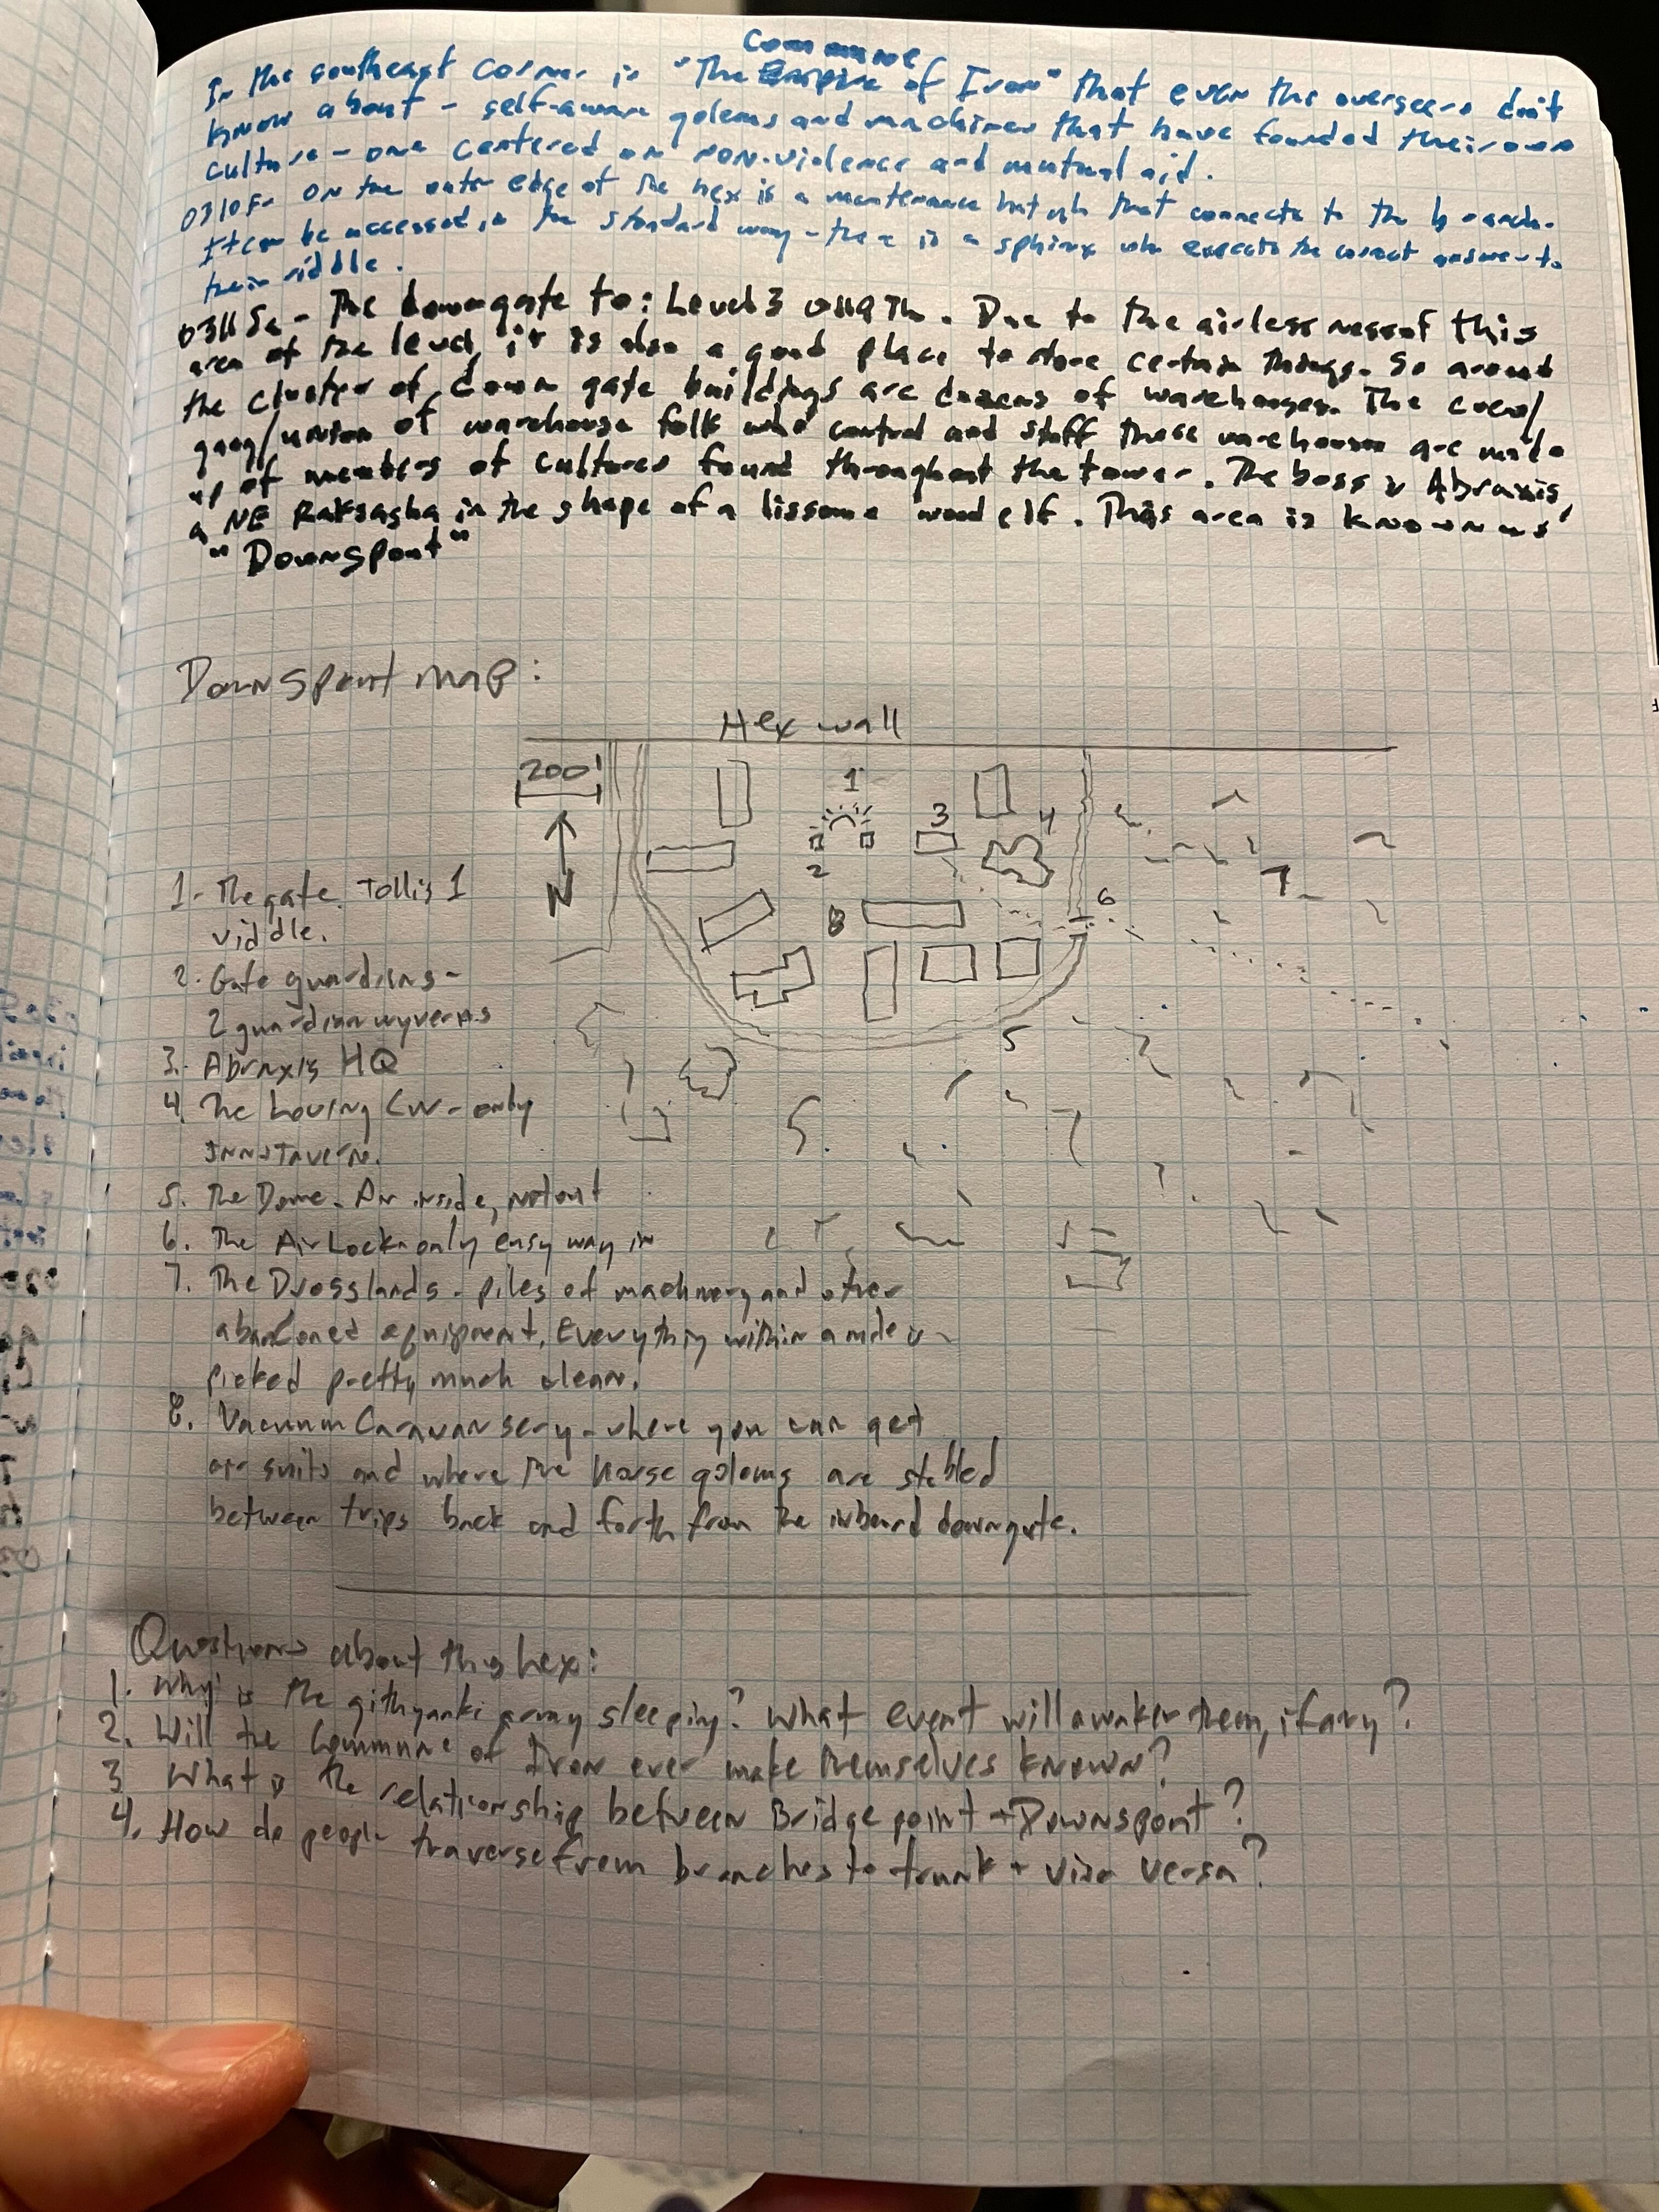 Commune
In the southeast corner is "The Empire of Iron" that even the overseers don't
know about - self-aware golems and machines that have founded their own
culture - one centered on non-violence and mutual aid.
0310F- On the outer edge of the hex is a maintenance hatch that connects to the branch.
It can be accessed in the standard way - there is a sphinx who expects the correct answer to
their riddle.
0311Se - The downgate to: Level 3 . Due to the airlessness of this
area of the level, it is also a good place to store certain things. So around
the cluster of down gate buildings are dozens of warehouses. The crew/
gang/union of warehouse folk who control and staff these warehouses are made
up of members of cultures found throughout the tower. The boss is Abraxis,
a NE Raksasha in the shape of a lissome wood elf. This area is known as
"Downspout"
Downspout map:
Hex wall
200'
N
1
2
3
4
5
6
7
8
1- The gate. Toll is 1
riddle.
2. Gate guardians -
2 guardian wyverns
3. Abraxis HQ
4. The Loving - only
Inn + Tavern.
5. The Dome - Air inside, not out
6. The AirLock - only easy way in
7. The Drosslands - piles of machinery and other
abandoned equipment. Everything within a mile is
picked pretty much clean.
8. Vacuum Caravansery - where you can get
air suits and where the horse golems are stabled
between trips back and forth from the inboard downgate.
Questions about this hex:
1. Why is the githyanki army sleeping? What event will awaken them, if any?
2. Will the Commune of Iron ever make themselves known?
3 What is the relationship between Bridgepoint + Downspout?
4. How do people traverse from branches to trunk + visa versa?